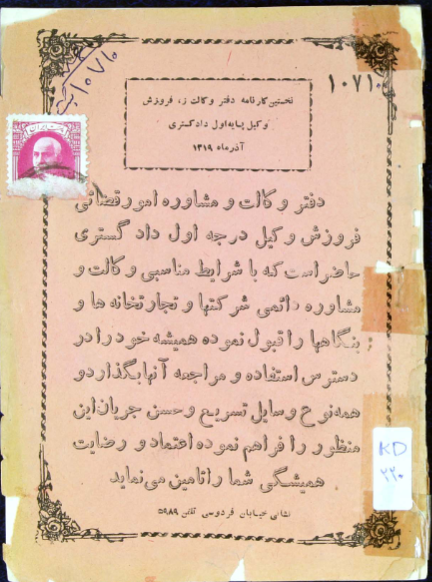 ۱۰۷۱۰
۱۰۷۱۰
نخستین کارنامه دفتر وکالت ز، فروزش
وکیل پایه اول دادگستری
آذرماه ۱۳۱۹
دفتر وکالت و مشاوره امور قضائی
فروزش وکیل درجه اول دادگستری
حاضر است که با شرایط مناسبی وکالت و
مشاوره دائمی شرکتها و تجارتخانه ها و
بنگاهها را قبول نموده همیشه خود را در
دسترس استفاده و مراجعه آنها بگذارد و
همه نوع وسایل تسریع و حسن جریان این
منظور را فراهم نموده اعتماد و رضایت
همیشگی شما را تامین می نماید
نشانی خیابان فردوسی تلفن ۵۹۸۹
KD
۲۲۰